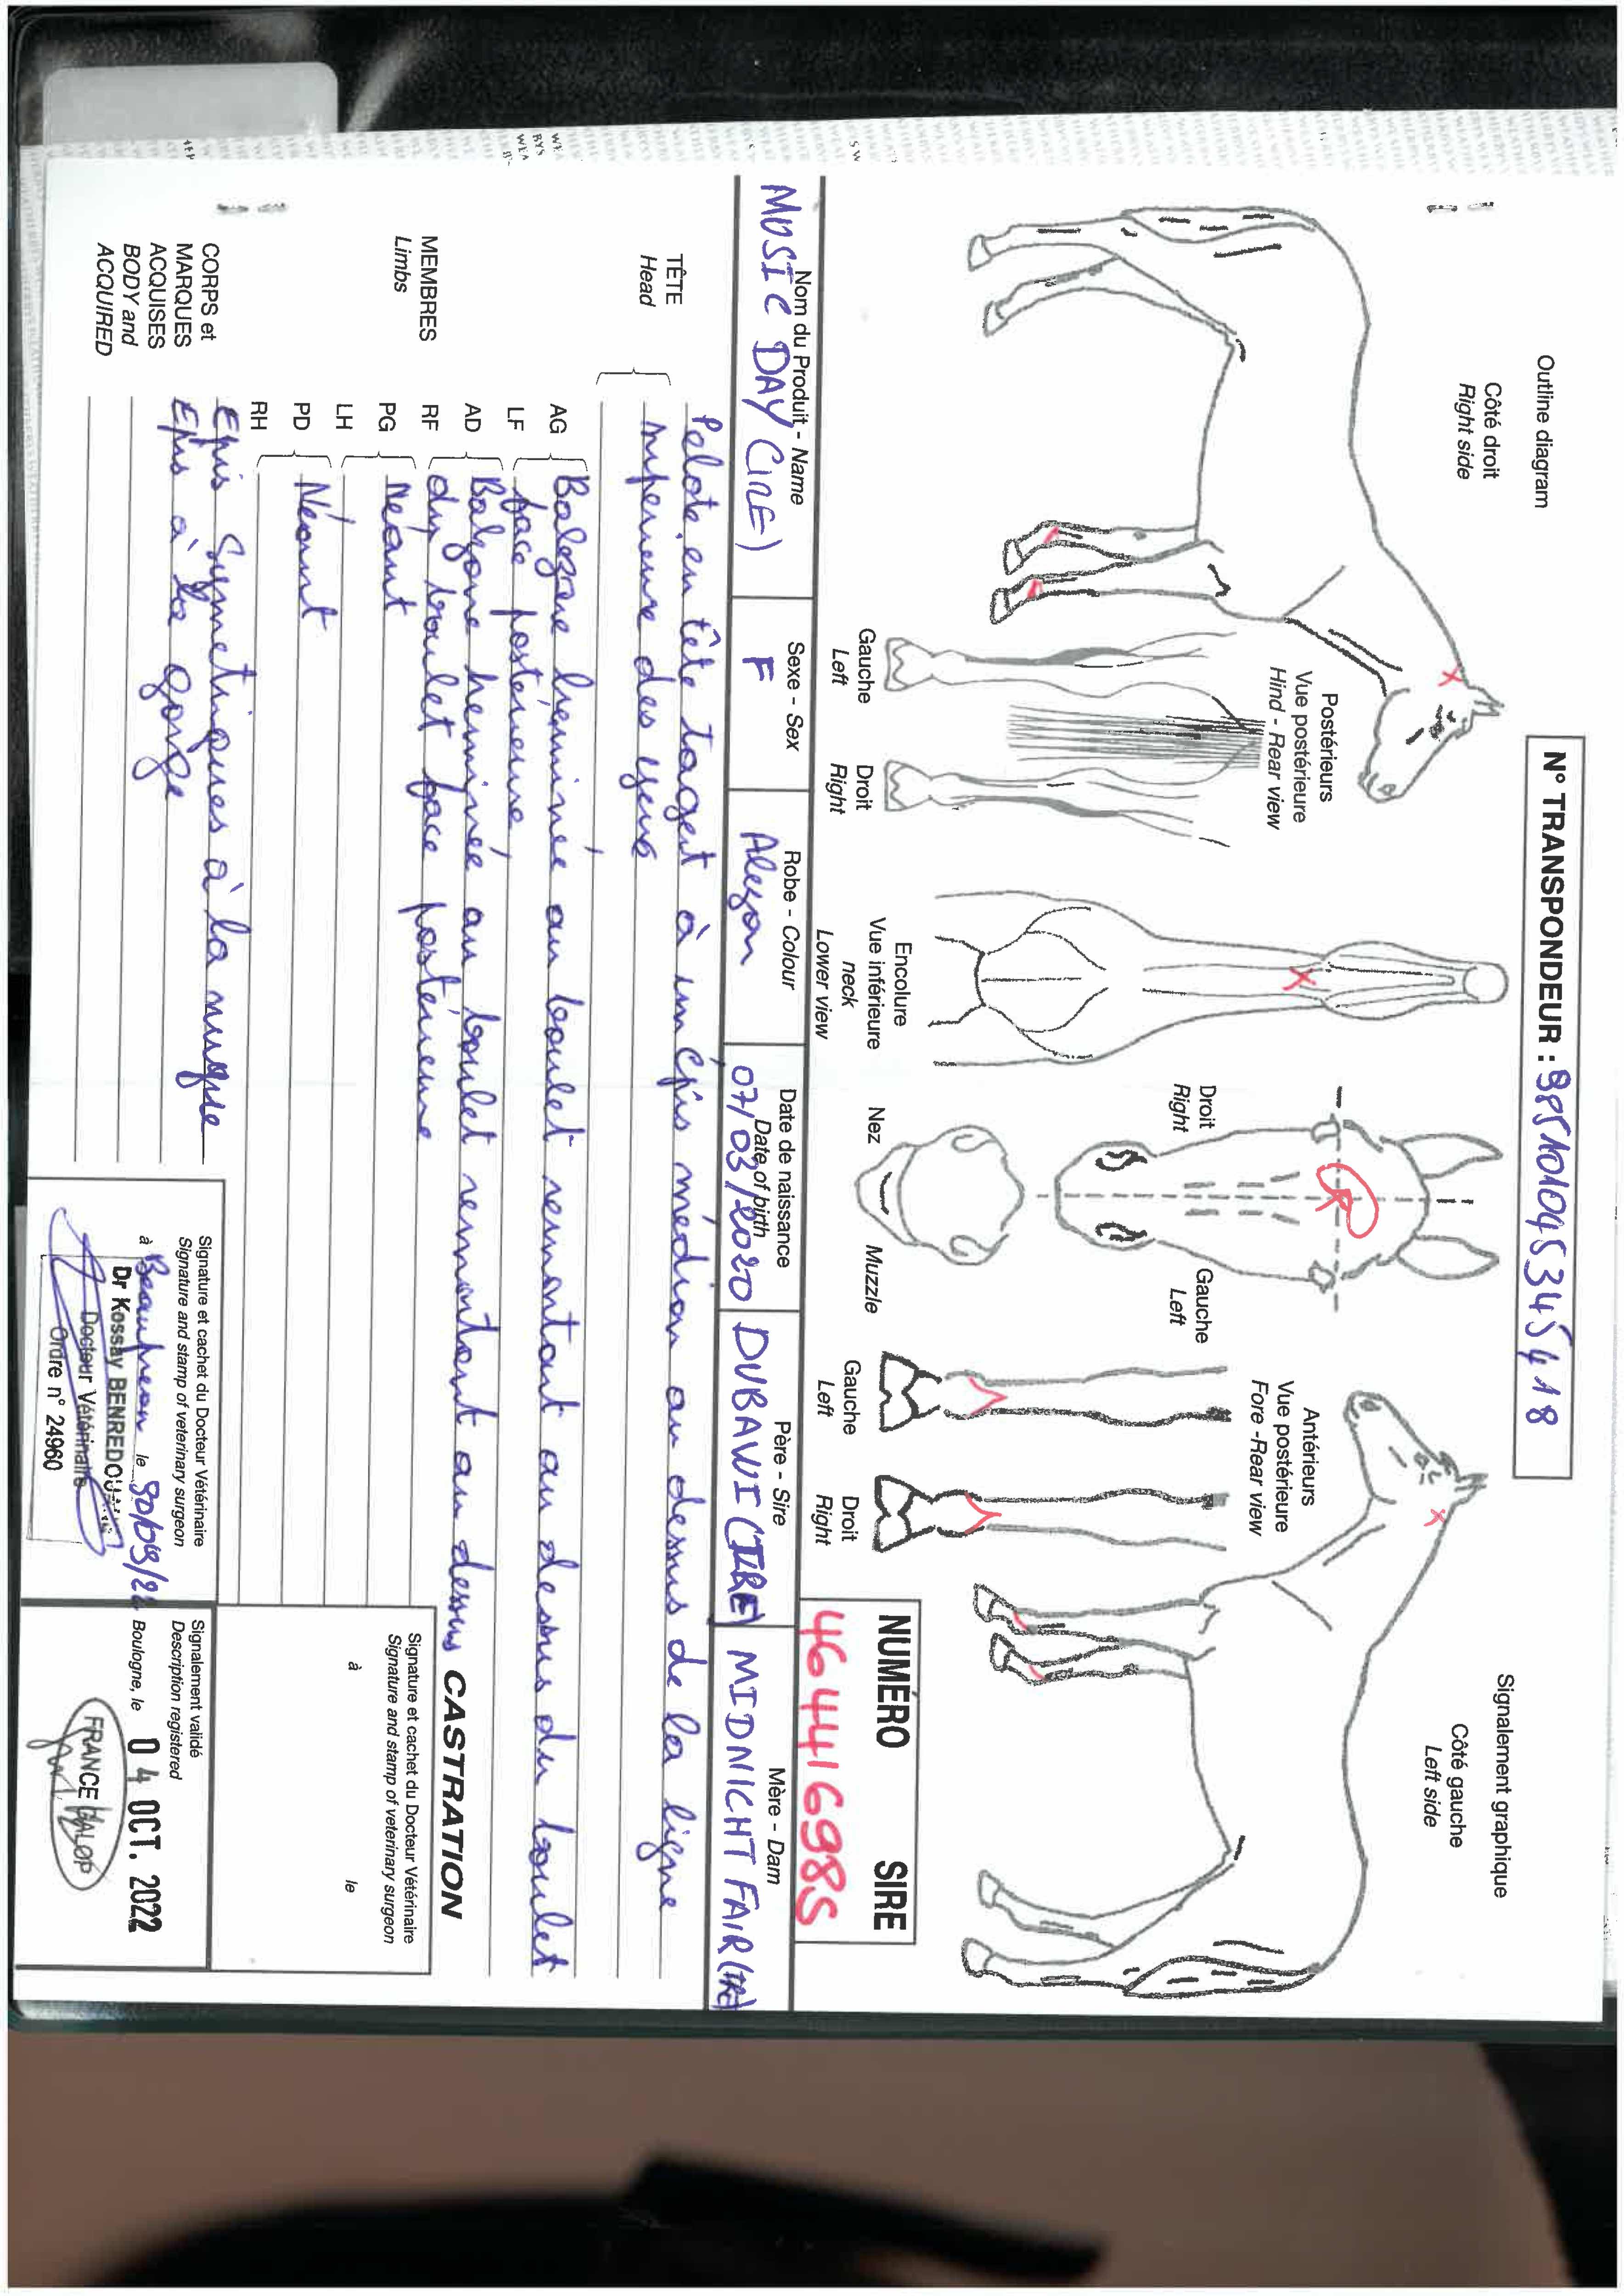 Outline diagram
N° TRANSPONDEUR : 985101045345418
Signalement graphique
Côté droit
Right side
Côté gauche
Left side
Postérieurs
Vue postérieure
Hind - Rear view
Gauche
Left
Droit
Right
Encolure
Vue inférieure
neck
Lower view
Droit
Right
Gauche
Left
Nez
Muzzle
Antérieurs
Vue postérieure
Fore - Rear view
Gauche
Left
Droit
Right
NUMÉRO SIRE
46441698S
Nom du Produit - Name
MUSIC DAY (IRE)
Sexe - Sex
F
Robe - Colour
Alezan
Date de naissance
Date of birth
07/03/2020
Père - Sire
DUBAWI (IRE)
Mère - Dam
MIDNICHT FAIR (IRE)
TÊTE
Head
Pelote en tête tagent à un épis médian au dessus de la ligne
superieure des yeux
MEMBRES
Limbs
AG
LF
Balzane herminée au boulet remontant au dessus du boulet
face postérieure
AD
RF
Balzane herminée au boulet remontant au dessus
du boulet face postérieure
PG
LH
Néant
PD
RH
Néant
CORPS et
MARQUES
ACQUISES
BODY and
ACQUIRED
Epis Symetriques à la nuque
Epis à la gorge
CASTRATION
Signature et cachet du Docteur Vétérinaire
Signature and stamp of veterinary surgeon
à le
Signature et cachet du Docteur Vétérinaire
Signature and stamp of veterinary surgeon
à Beaupreau le 30/09/22
Dr Kossay BENREDOUANE
Docteur Vétérinaire
Ordre n° 24960
Signalement validé
Description registered
Boulogne, le 04 OCT. 2022
FRANCE GALOP